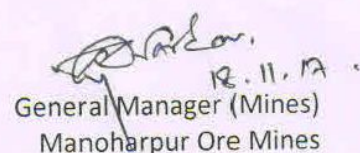 18.11.17.
General Manager (Mines)
Manoharpur Ore Mines